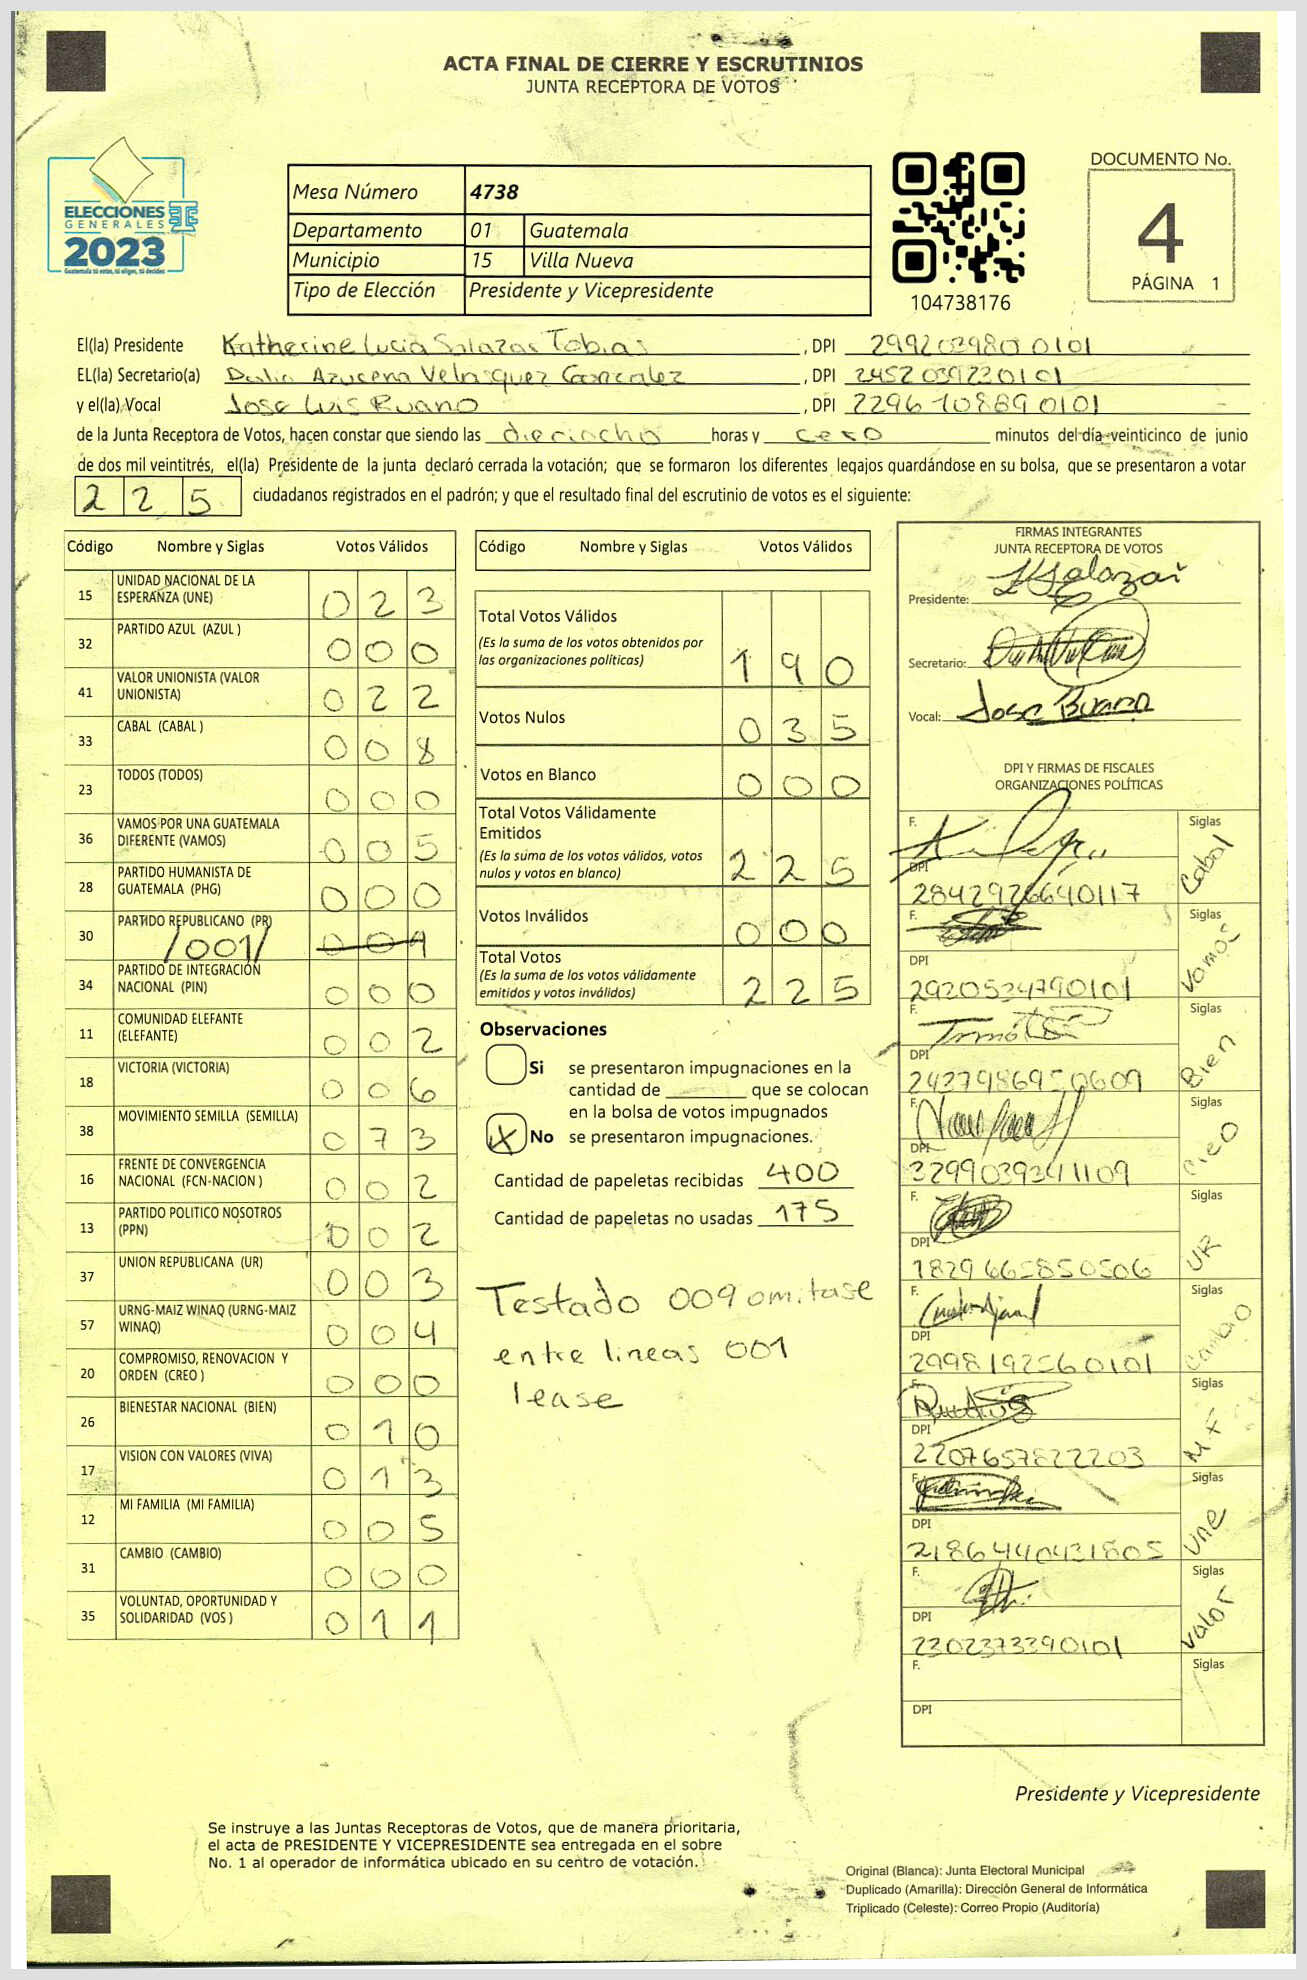 ACTA FINAL DE CIERRE Y ESCRUTINIOS
JUNTA RECEPTORA DE VOTOS
ELECCIONES
GENERALES
2023
Guatemala tú votas, tú eliges, tú decides
Mesa Número 4738
Departamento 01 Guatemala
Municipio 15 Villa Nueva
Tipo de Elección Presidente y Vicepresidente
104738176
DOCUMENTO No.
4
PÁGINA 1
El(la) Presidente Katherine Lucia Salazar Tobias, DPI 2992039800101
EL(la) Secretario(a) Azucena Velasquez Gonzalez, DPI 2452039230101
y el(la) Vocal Jose Luis Ruano, DPI 2296108890101
de la Junta Receptora de Votos, hacen constar que siendo las dieciocho horas y cero minutos del día veinticinco de junio
de dos mil veintitrés, el(la) Presidente de la junta declaró cerrada la votación; que se formaron los diferentes legajos guardándose en su bolsa, que se presentaron a votar
225 ciudadanos registrados en el padrón; y que el resultado final del escrutinio de votos es el siguiente:
Código Nombre y Siglas Votos Válidos
15 UNIDAD NACIONAL DE LA ESPERANZA (UNE) 023
32 PARTIDO AZUL (AZUL ) 000
41 VALOR UNIONISTA (VALOR UNIONISTA) 022
33 CABAL (CABAL ) 008
23 TODOS (TODOS) 000
36 VAMOS POR UNA GUATEMALA DIFERENTE (VAMOS) 005
28 PARTIDO HUMANISTA DE GUATEMALA (PHG) 000
30 PARTIDO REPUBLICANO (PR) /001/ 009
34 PARTIDO DE INTEGRACIÓN NACIONAL (PIN) 000
11 COMUNIDAD ELEFANTE (ELEFANTE) 002
18 VICTORIA (VICTORIA) 006
38 MOVIMIENTO SEMILLA (SEMILLA) 073
16 FRENTE DE CONVERGENCIA NACIONAL (FCN-NACION ) 002
13 PARTIDO POLITICO NOSOTROS (PPN) 002
37 UNION REPUBLICANA (UR) 003
57 URNG-MAIZ WINAQ (URNG-MAIZ WINAQ) 004
20 COMPROMISO, RENOVACION Y ORDEN (CREO ) 000
26 BIENESTAR NACIONAL (BIEN) 010
17 VISION CON VALORES (VIVA) 013
12 MI FAMILIA (MI FAMILIA) 005
31 CAMBIO (CAMBIO) 000
35 VOLUNTAD, OPORTUNIDAD Y SOLIDARIDAD (VOS ) 011
Código Nombre y Siglas Votos Válidos
Total Votos Válidos
(Es la suma de los votos obtenidos por
las organizaciones políticas) 190
Votos Nulos 035
Votos en Blanco 000
Total Votos Válidamente
Emitidos
(Es la suma de los votos válidos, votos
nulos y votos en blanco) 225
Votos Inválidos 000
Total Votos
(Es la suma de los votos válidamente
emitidos y votos inválidos) 225
Observaciones
Si se presentaron impugnaciones en la
cantidad de ______ que se colocan
en la bolsa de votos impugnados
X No se presentaron impugnaciones.
Cantidad de papeletas recibidas 400
Cantidad de papeletas no usadas 175
Testado 009 omitase
entre lineas 001
lease
FIRMAS INTEGRANTES
JUNTA RECEPTORA DE VOTOS
Presidente: Salazar
Secretario:
Vocal: Jose Ruano
DPI Y FIRMAS DE FISCALES
ORGANIZACIONES POLÍTICAS
F. Siglas Cabal
DPI 2842926640117
F. Siglas Vamos
DPI 2920534790101
F. Siglas Bien
DPI 2437986950609
F. Siglas Creo
DPI 3299039341109
F. Siglas UR
DPI 1829665850506
F. Siglas Cambio
DPI 2998192560101
F. Siglas MF
DPI 2207657822203
F. Siglas Une
DPI 2186440431805
F. Siglas Valor
DPI 2302373390101
F. Siglas
DPI
Presidente y Vicepresidente
Se instruye a las Juntas Receptoras de Votos, que de manera prioritaria,
el acta de PRESIDENTE Y VICEPRESIDENTE sea entregada en el sobre
No. 1 al operador de informática ubicado en su centro de votación.
Original (Blanca): Junta Electoral Municipal
Duplicado (Amarilla): Dirección General de Informática
Triplicado (Celeste): Correo Propio (Auditoría)